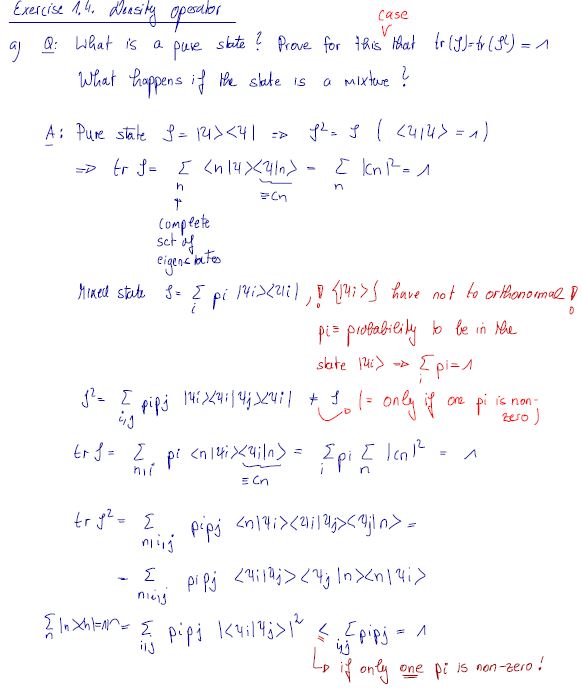 Exercise 1.4. Density operator
case
a) Q: What is a pure state? Prove for this that tr(ρ)=tr(ρ²) = 1
What happens if the state is a mixture?
A: Pure state ρ = |ψ><ψ| => ρ² = ρ ( <ψ|ψ> = 1)
=> tr ρ = Σ_n <n|ψ><ψ|n> = Σ_n |cn|² = 1
≡cn
↑
complete
set of
eigenstates
Mixed state ρ = Σ_i pi |ψi><ψi| , ! {|ψi>} have not to orthonormal !
pi = probability to be in the
state |ψi> => Σ_i pi = 1
ρ² = Σ_i,j pipj |ψi><ψi|ψj><ψi| ≠ ρ (= only if one pi is non-
zero)
tr ρ = Σ_n,i pi <n|ψi><ψi|n> = Σ_i pi Σ_n |cn|² = 1
≡ cn
tr ρ² = Σ_n,i,j pipj <n|ψi><ψi|ψj><ψj|n> =
= Σ_n,i,j pipj <ψi|ψj><ψj|n><n|ψi>
Σ_n |n><n|=1 = Σ_i,j pipj |<ψi|ψj>|² ≤ Σ_i,j pipj = 1
↳ if only one pi is non-zero!